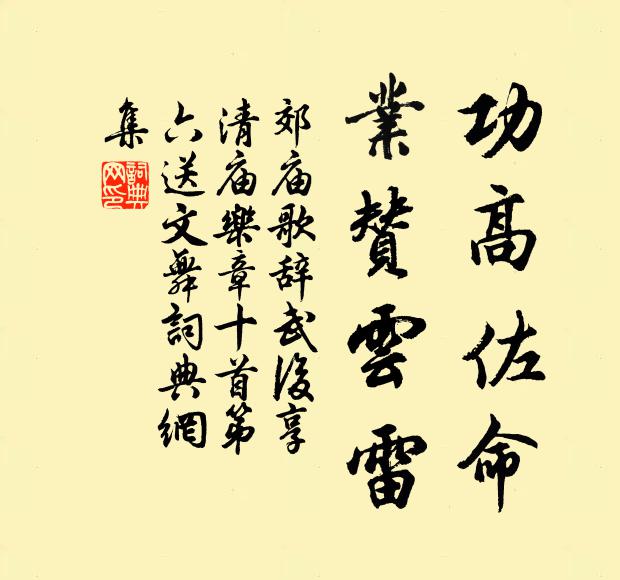 功高佐命
業贊雲雷
郊庙歌辞武後享
清庙樂章十首第
六送文舞詞典網
集
詞典网印